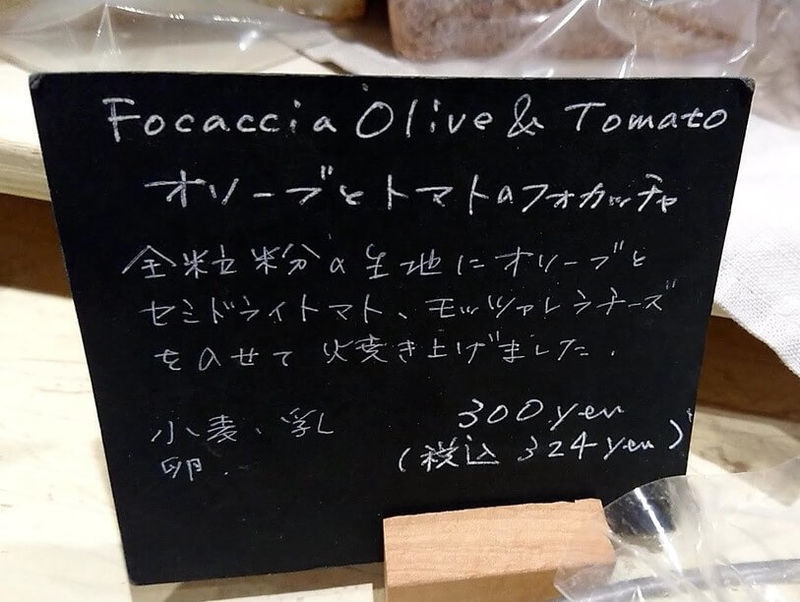 Focaccia Olive & Tomato
オリーブとトマトのフォカッチャ
全粒粉の生地にオリーブと
セミドライトマト、モッツァレラチーズ
をのせて焼き上げました。
小麦、乳
卵.
300yen
(税込 324yen)